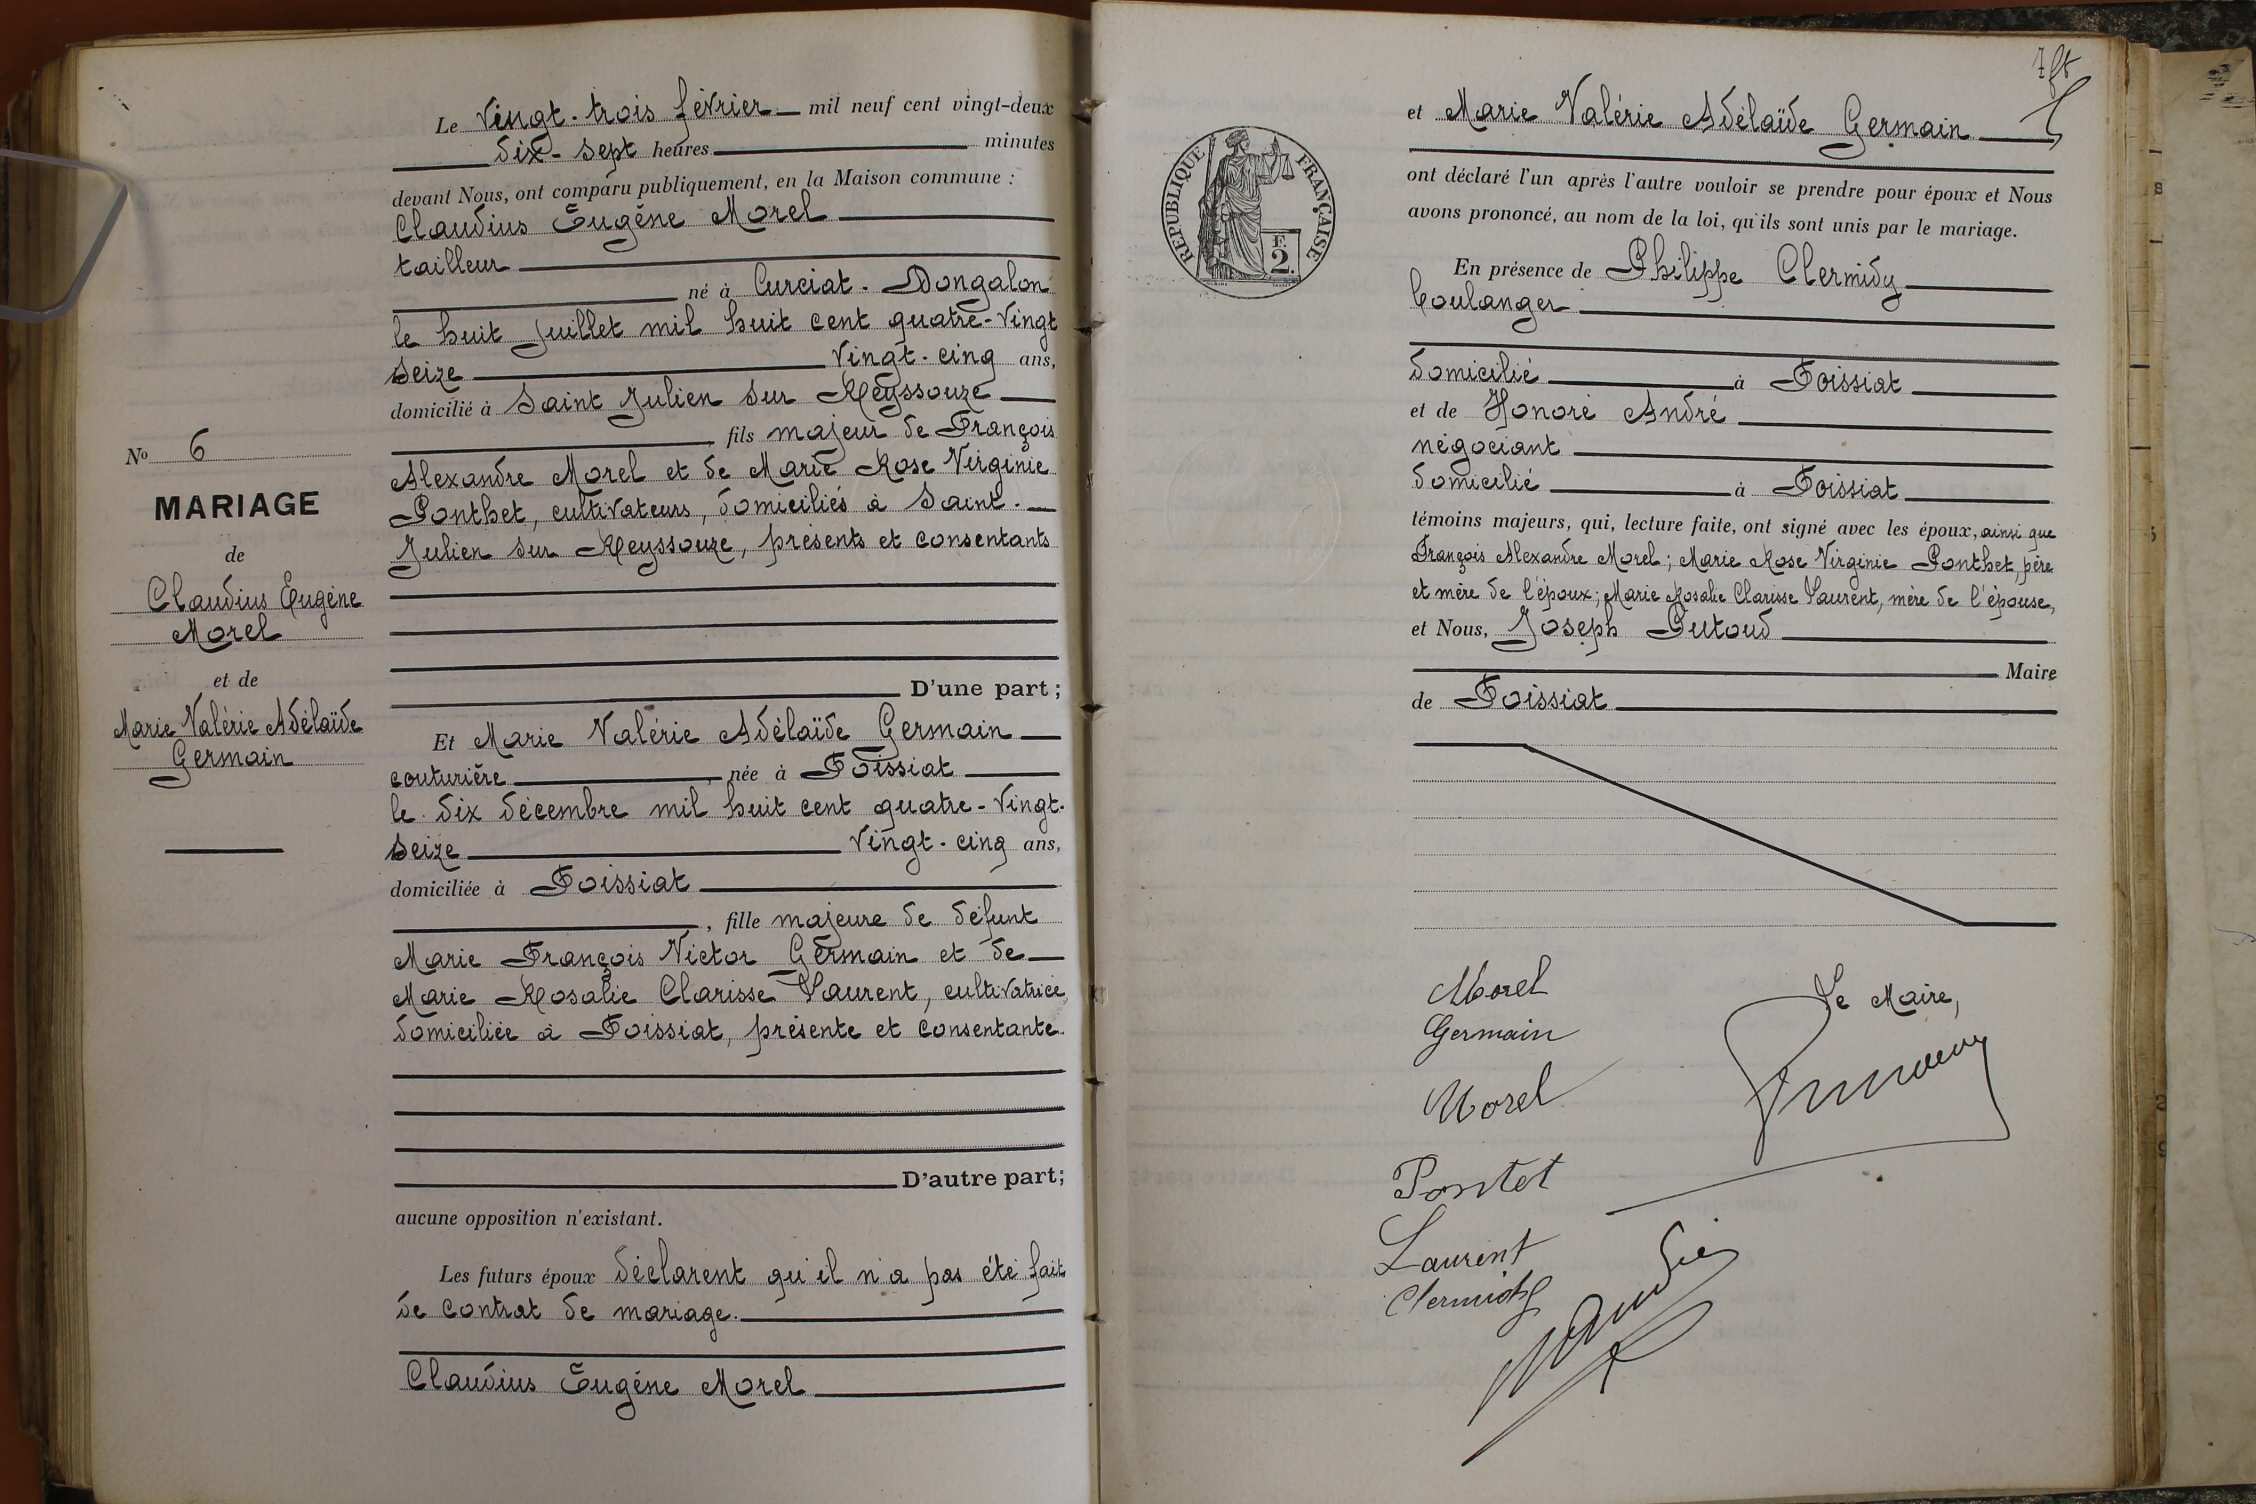 Le vingt-trois février mil neuf cent vingt-deux
dix-sept heures minutes
devant Nous, ont comparu publiquement, en la Maison commune :
Claudius Eugène Morel
tailleur
né à Curciat-Dongalon
le huit juillet mil huit cent quatre-vingt
seize vingt-cinq ans,
domicilié à Saint Julien sur Reyssouze
, fils majeur de François
Alexandre Morel et de Marie Rose Virginie
Ponthet, cultivateurs, domiciliés à Saint-
Julien sur Reyssouze, présents et consentants
D'une part ;
Et Marie Valérie Adélaïde Germain
couturière, née à Foissiat
le dix décembre mil huit cent quatre-vingt-
seize vingt-cinq ans,
domiciliée à Foissiat
, fille majeure de défunt
Marie François Victor Germain et de
Marie Rosalie Clarisse Laurent, cultivatrice,
domiciliée à Foissiat, présente et consentante.
D'autre part;
aucune opposition n'existant.
Les futurs époux déclarent qu'il n'a pas été fait
de contrat de mariage.
Claudius Eugène Morel
No 6
MARIAGE
de
Claudius Eugène
Morel
et de
Marie Valérie Adélaïde
Germain
et Marie Valérie Adélaïde Germain
ont déclaré l'un après l'autre vouloir se prendre pour époux et Nous
avons prononcé, au nom de la loi, qu'ils sont unis par le mariage.
REPUBLIQUE FRANÇAISE
F.
2.
En présence de Philippe Clermidy
boulanger
domicilié à Foissiat
et de Honoré André
négociant
domicilié à Foissiat
témoins majeurs, qui, lecture faite, ont signé avec les époux, ainsi que
François Alexandre Morel; Marie Rose Virginie Ponthet, père
et mère de l'époux; Marie Rosalie Clarisse Laurent, mère de l'épouse,
et Nous, Joseph Putoud
Maire
de Foissiat
Morel
Germain
Le Maire,
Morel
Pontet
Laurent
Clermidy